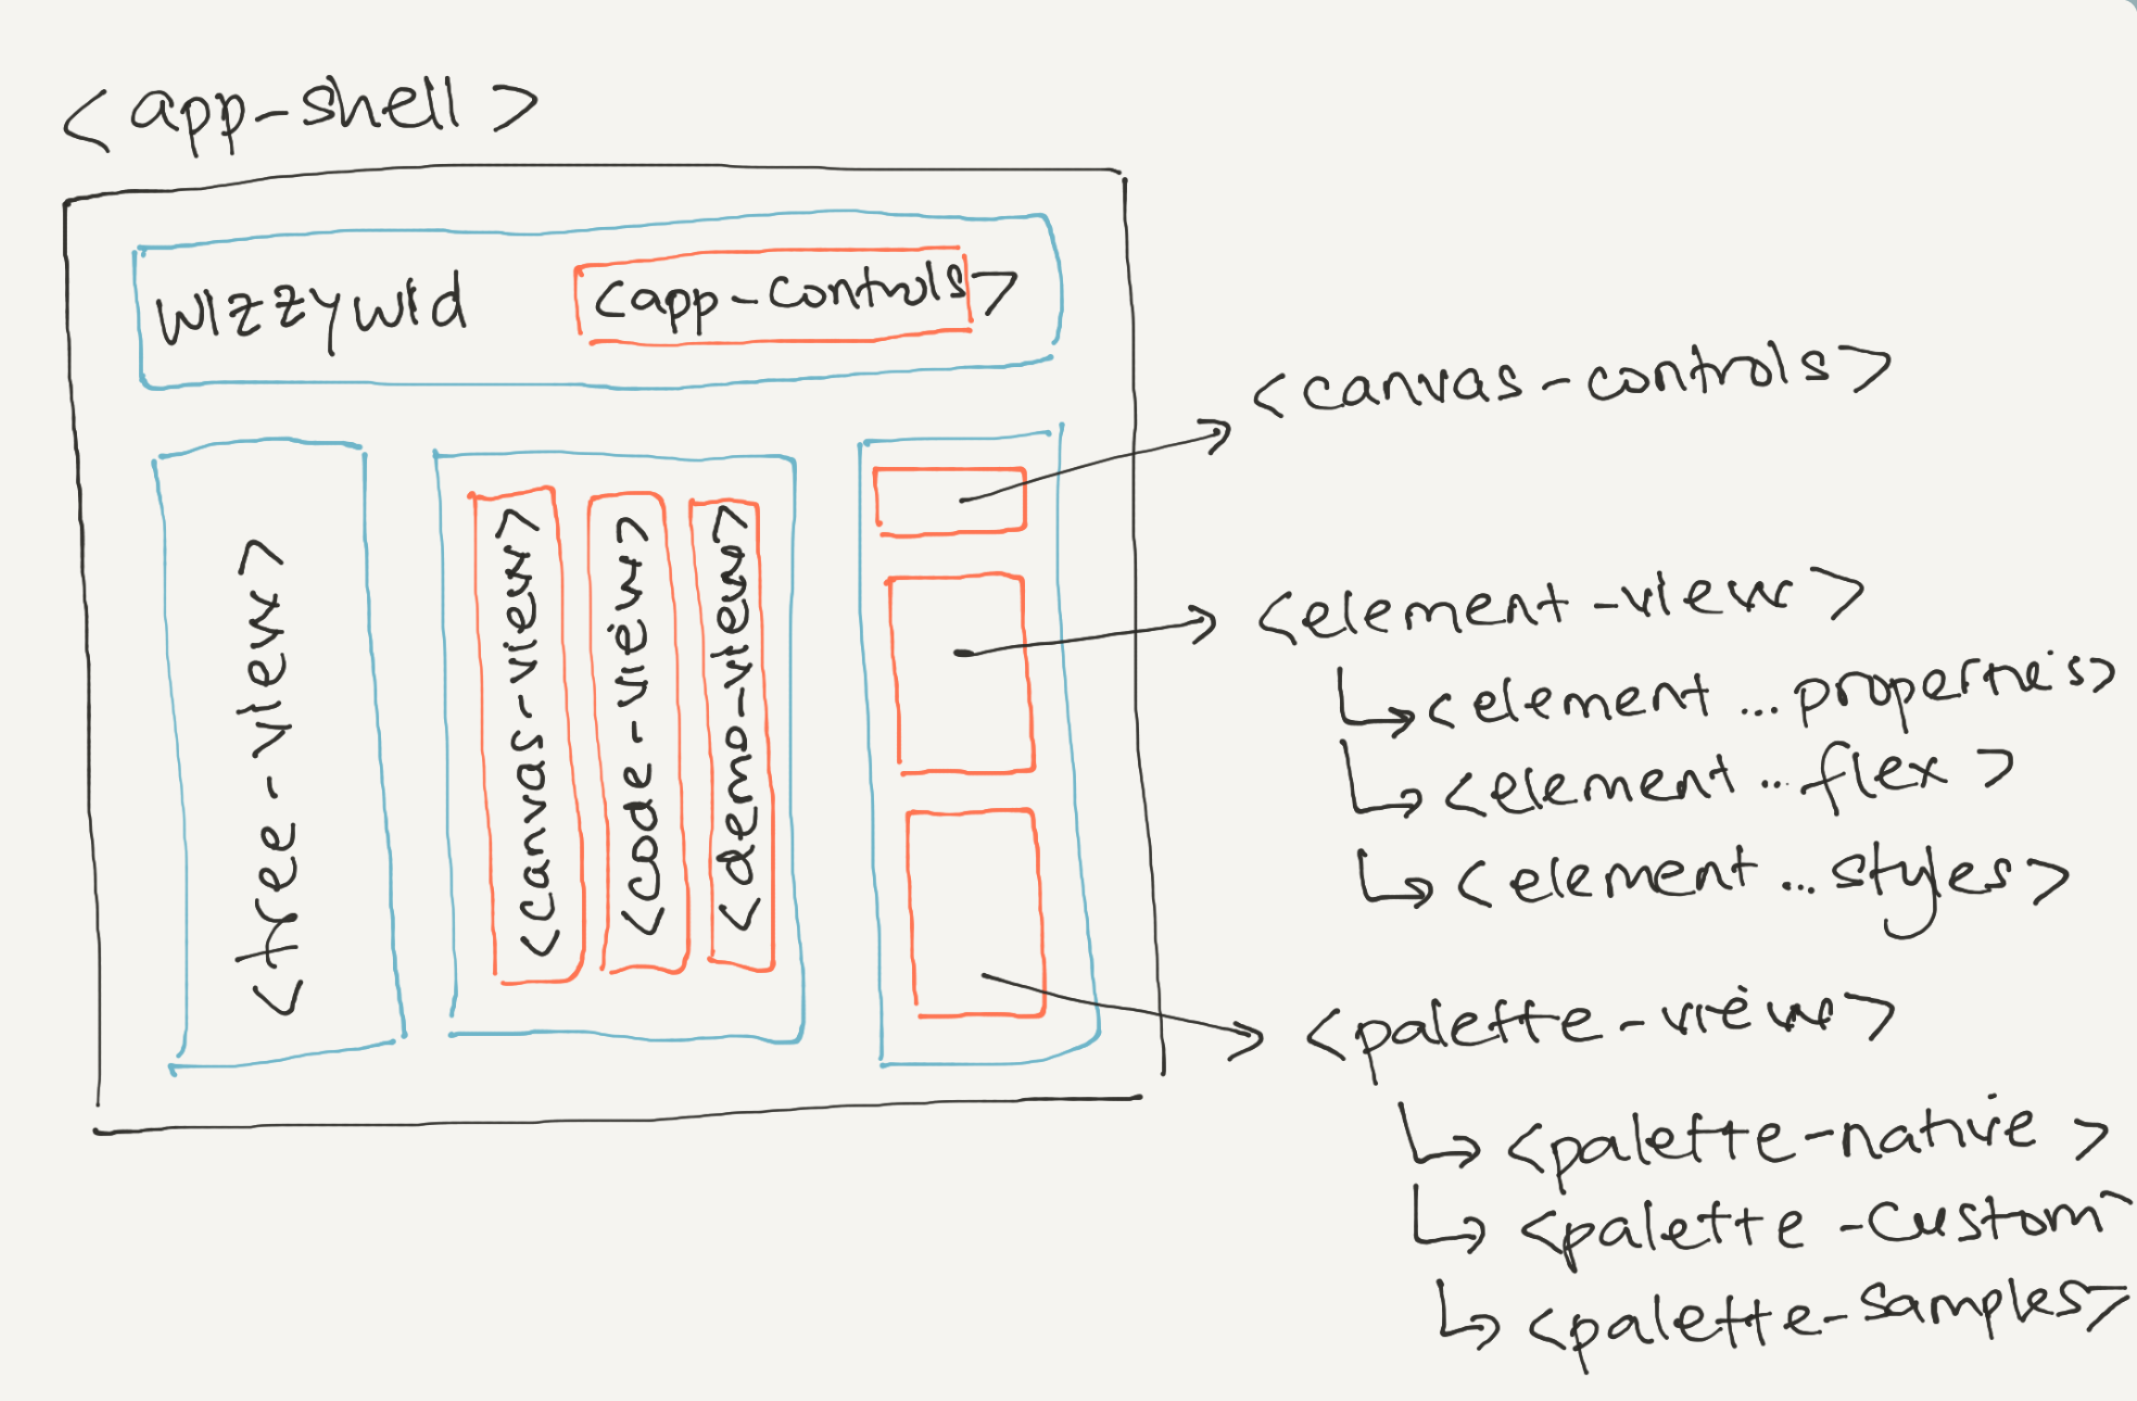 <app-shell>
wizzywid <app-controls>
<tree-view>
<canvas-view>
<code-view>
<demo-view>
<canvas-controls>
<element-view>
<element...properties>
<element...flex>
<element...styles>
<palette-view>
<palette-native>
<palette-custom
<palette-samples>